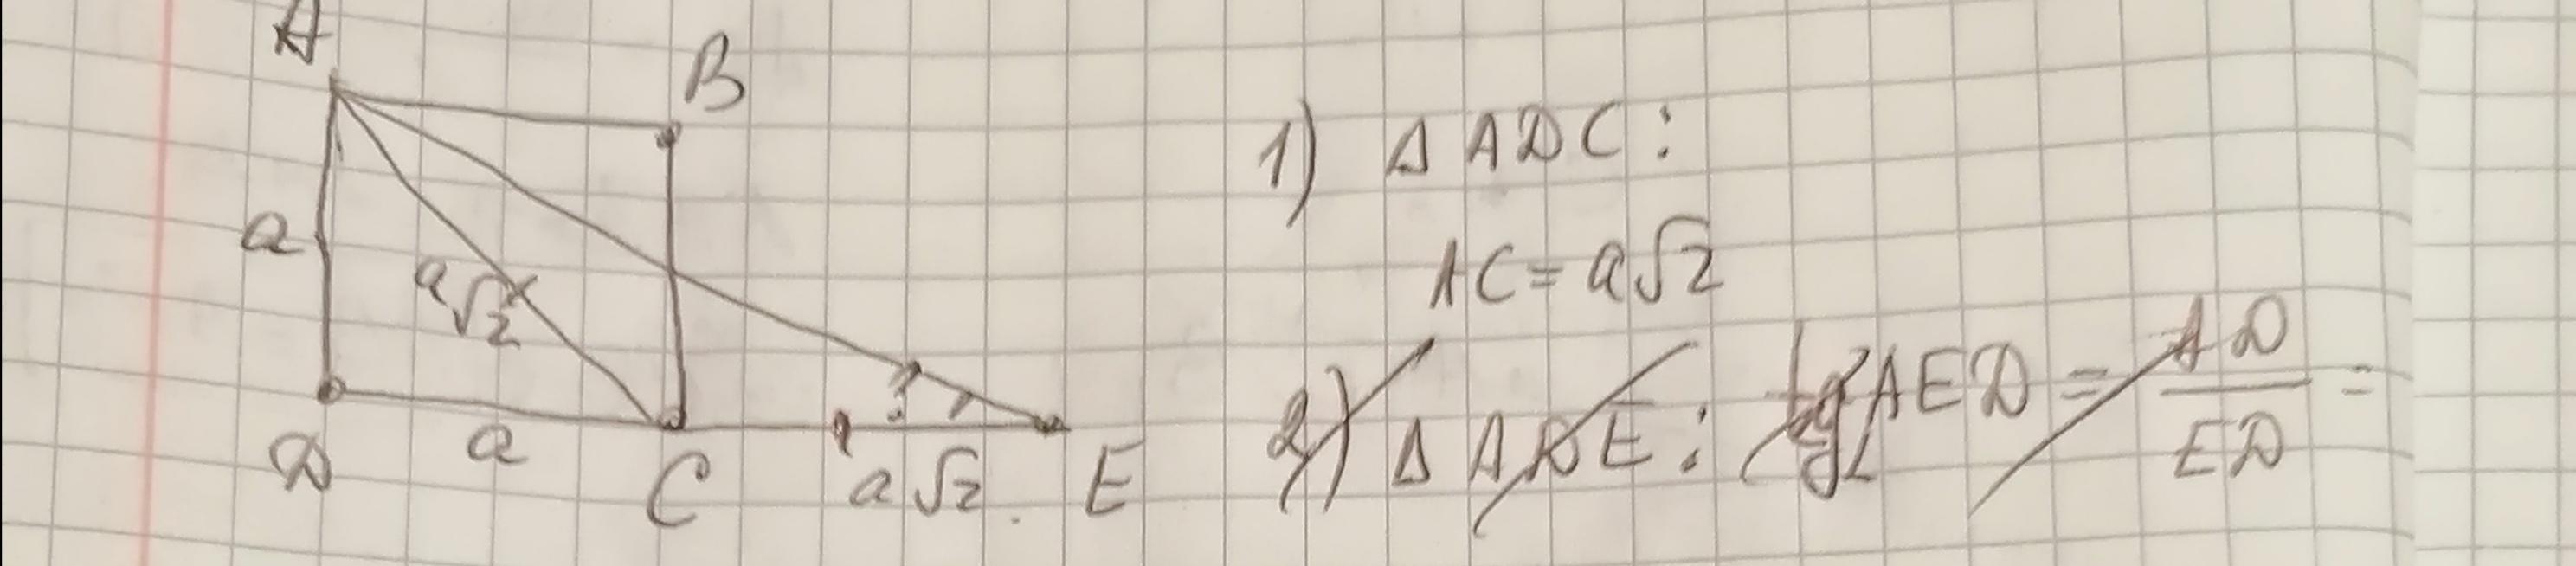 A
B
a
a√2
?
D
a
C
a√2
E
1) Δ ADC:
AC = a√2
2) Δ ADE: tg∠AED = AD/ED =